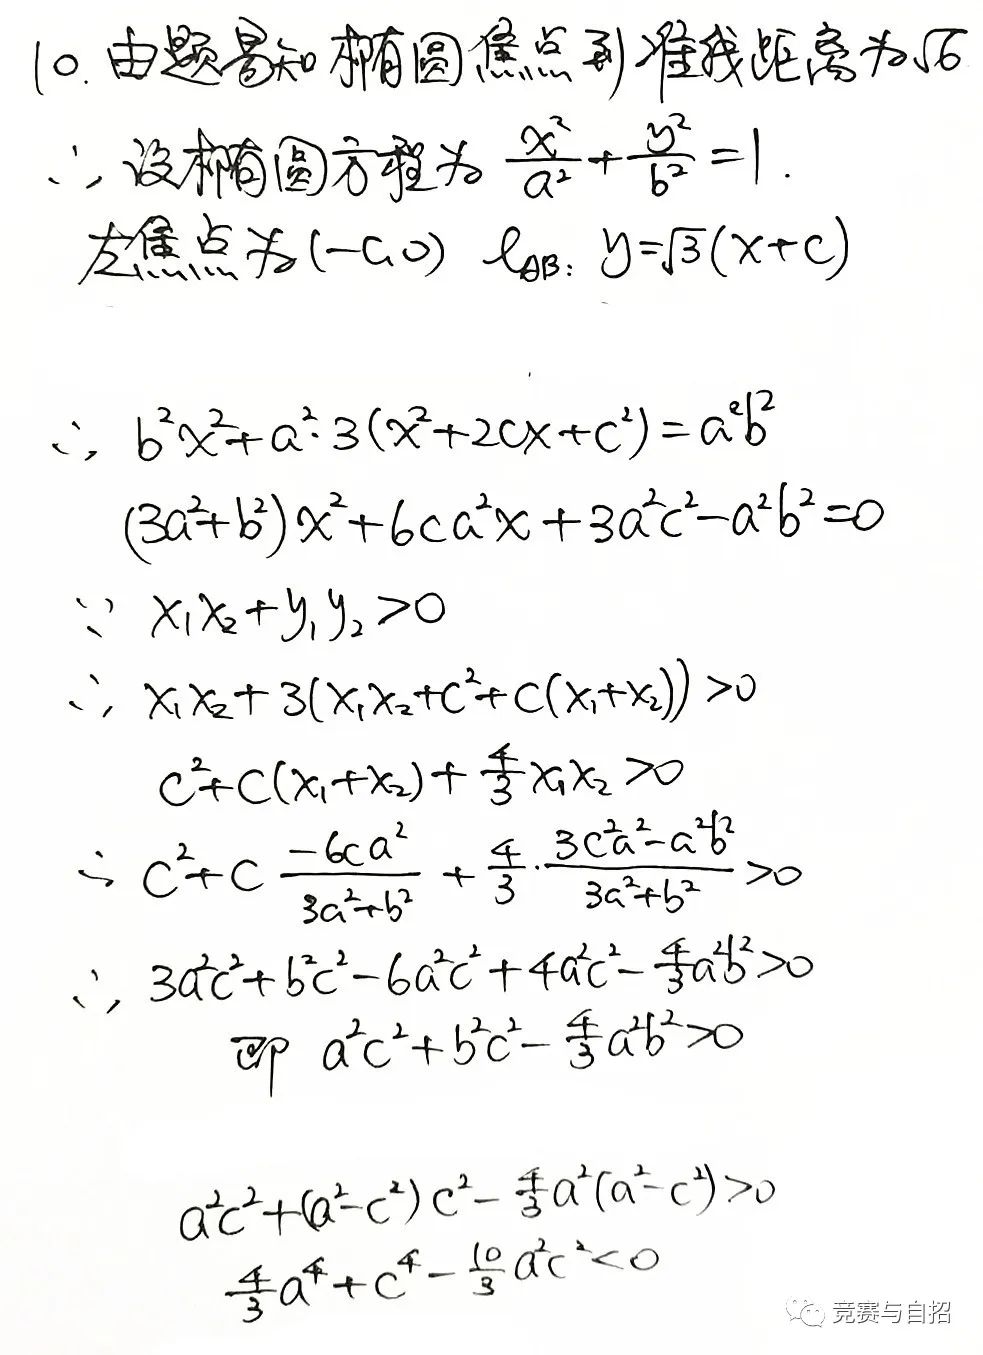 10. 由题易知椭圆焦点到准线距离为√6
∴ 设椭圆方程为 x²/a² + y²/b² = 1.
左焦点为(-c,0) l_AB: y=√3(x+c)
∴ b²x²+a²·3(x²+2cx+c²)=a²b²
(3a²+b²)x²+6ca²x+3a²c²-a²b²=0
∵ x₁x₂+y₁y₂>0
∴ x₁x₂+3(x₁x₂+c²+c(x₁+x₂))>0
c²+c(x₁+x₂)+4/3 x₁x₂>0
∴ c²+c (-6ca²)/(3a²+b²) + 4/3 · (3c²a²-a²b²)/(3a²+b²) >0
∴ 3a²c²+b²c²-6a²c²+4a²c²-4/3 a²b²>0
即 a²c²+b²c²-4/3 a²b²>0
a²c²+(a²-c²)c²-4/3 a²(a²-c²)>0
4/3 a⁴+c⁴-10/3 a²c²<0
竞赛与自招